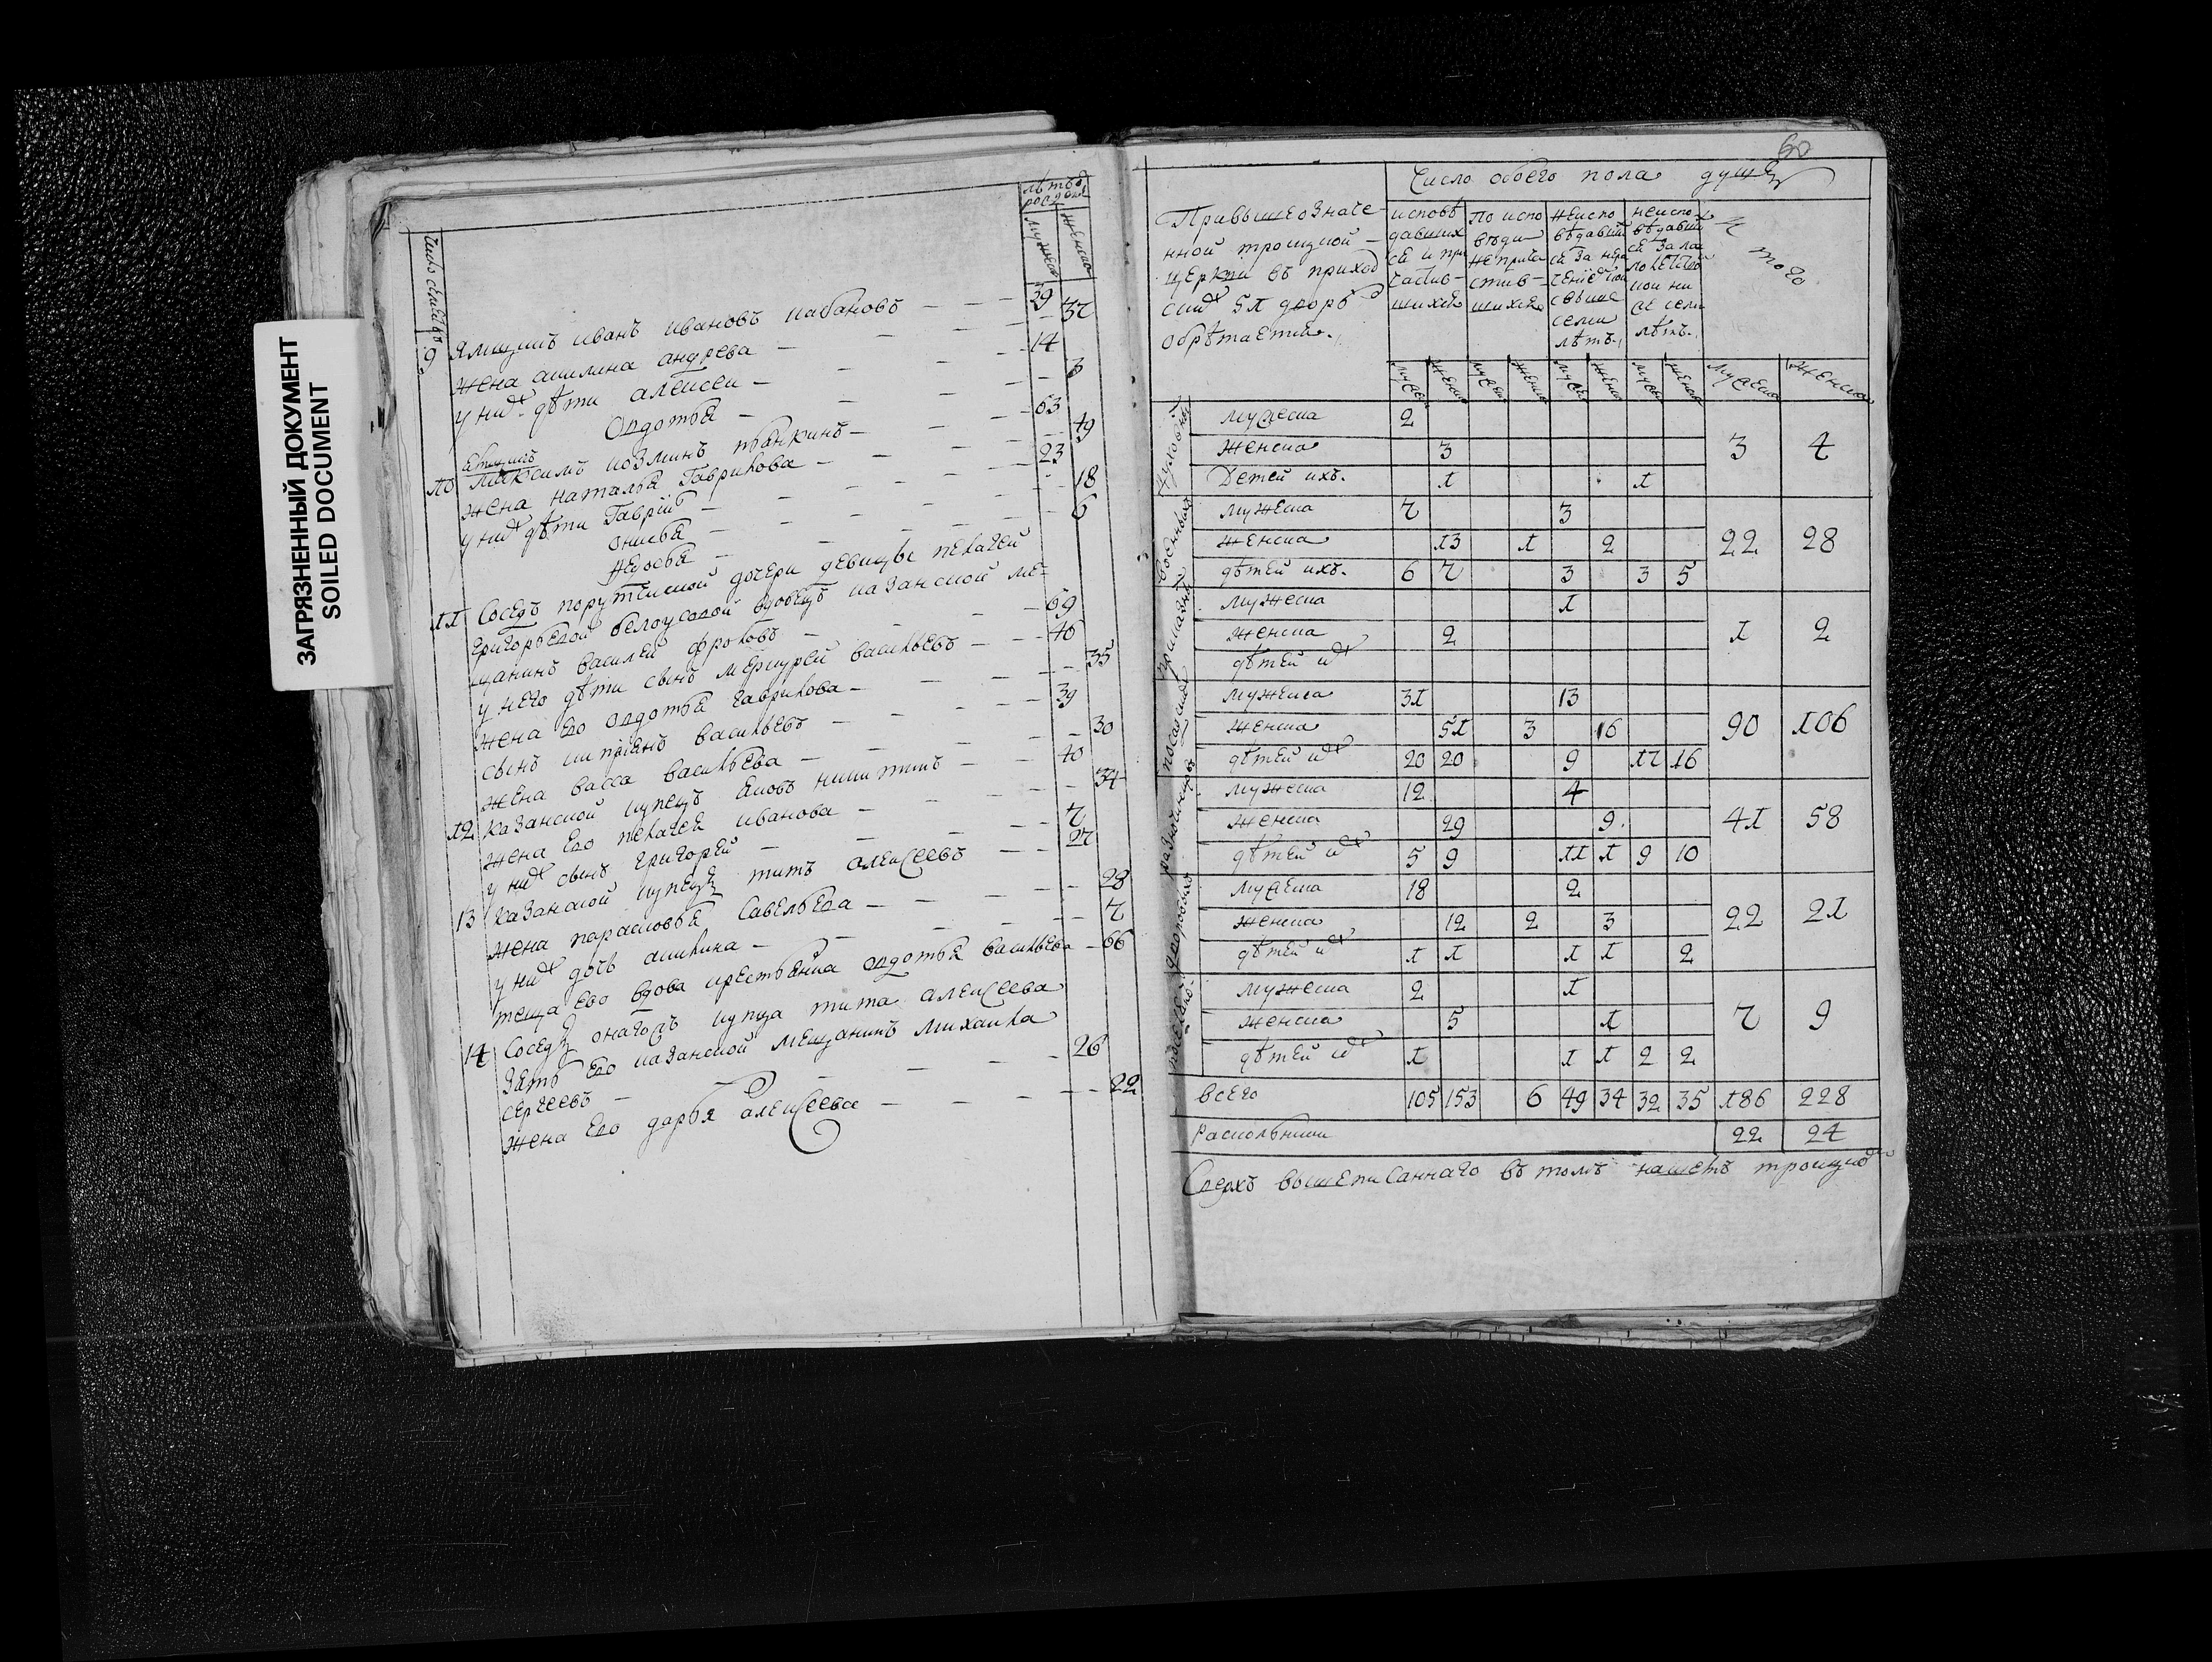 ЗАГРЯЗНЕННЫЙ ДОКУМЕНТ
SOILED DOCUMENT
лѣтъ
мужеска женска
9 Ямщикъ иванъ ивановъ кабановъ 39
жена акилина андрева 37
у них дѣти алексеи 14
овдотья 3
ямщикъ
10 Максимъ козминъ 63
жена наталья Гаврилова 49
у них дѣти Гаврiил 23
18
6
11 Соседъ порутческой дочери девицы пелагеи
григорьевой белоусовой вдовецъ казанской ме-
щанинъ василей фроловъ 69
у него дѣти сынъ меркурей васильевъ 40
жена ево овдотья гаврилова 35
сынъ киприянъ васильевъ 39
жена васса васильева 30
12 казанской купецъ яковъ никитинъ 40
жена ево пелагея иванова 34
у них сынъ григорей 7
13 казанской купецъ титъ алексеевъ 27
жена парасковья савельева 28
у них дочь акилина 7
теща ево вдова крестьянка овдотья васильева 66
14 Соседъ онагожъ купца тита алексеева
зять ево казанской мещанинъ михаила
сергеевъ 26
жена ево дарья алексеева 22
60
Число обоего пола душъ
Привышеозначе-
нной троицкой
церкви въ приход
ских 51 дворѣ
обрѣтается.
исповѣ
давших
ся и при
частив-
шихся
по испо
веди
не прича
стив-
шихся
неиспо
вѣдавш
свыше
семи
лѣтъ.
неиспо
вѣдавш
ся за ма
лѣтъ.
того
мужеска женска мужеска женска мужеска женска мужеска женска мужеска женска
мужеска 2
женска 3 3 4
Детей ихъ. 1 1
мужеска 7 3
женска 13 1 2 22 28
дѣтей ихъ. 6 7 3 3 5
мужеска 1
женска 2 1 2
дѣтей их
мужеска 31 13
женска 51 3 16 90 106
дѣтей их 20 20 9 17 16
мужеска 12 4
женска 29 9 41 58
дѣтей их 5 9 11 1 9 10
мужеска 18 2
женска 12 2 3 22 21
дѣтей их 1 1 1 1 2
мужеска 2 1
женска 5 1 7 9
дѣтей их 1 1 1 2 2
всего 105 153 6 49 34 32 35 186 228
Раскольники 22 24
Сверхъ вышеписаннаго въ томъ нашемъ троицко